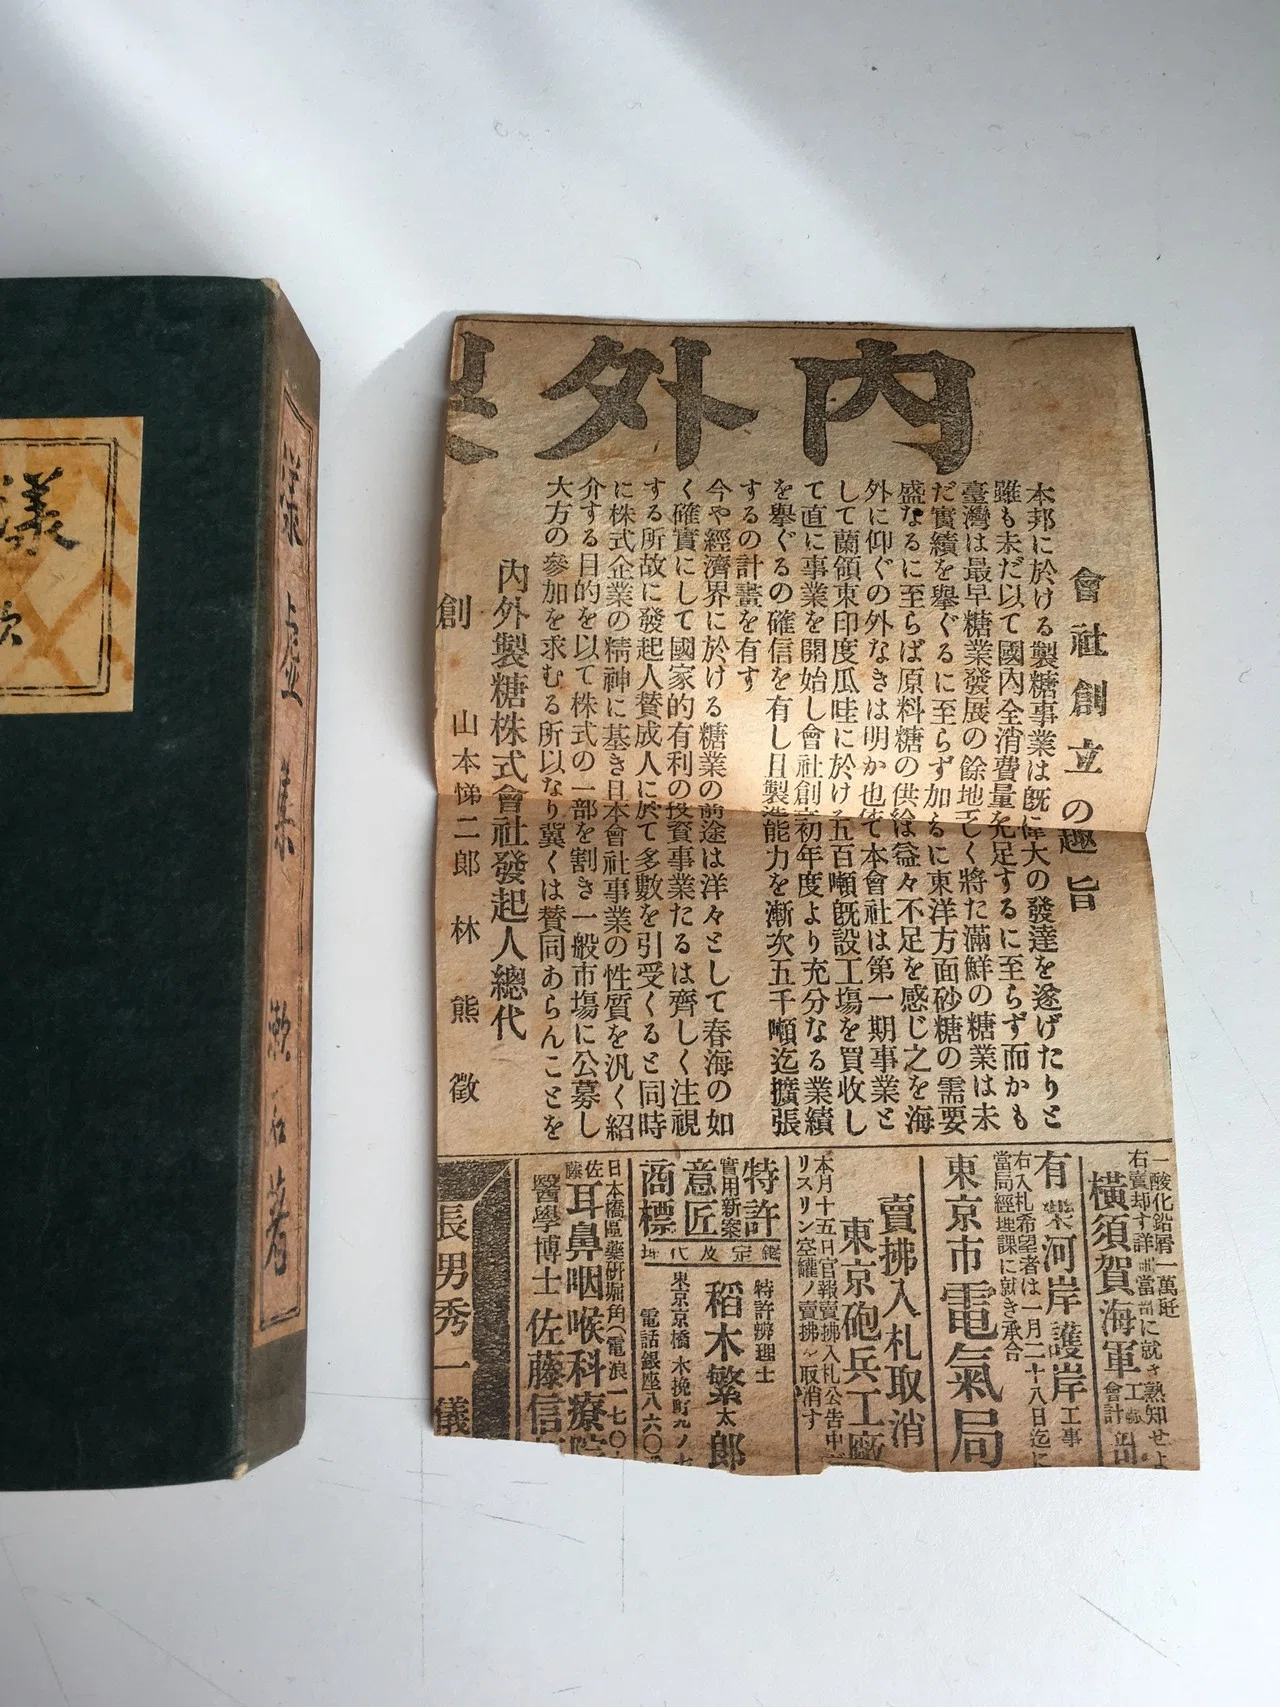 内外
會社創立の趣旨
本邦に於ける製糖事業は既に偉大の發達を遂げたりと
雖も未だ以て國内全消費量を充足するに至らず而かも
臺灣は最早糖業發展の餘地乏しく將た滿鮮の糖業は未
だ實績を擧ぐるに至らず加ふるに東洋方面砂糖の需要
盛なるに至らば原料糖の供給益々不足を感じ之を海
外に仰ぐの外なきは明か也依て本會社は第一期事業と
して蘭領東印度瓜哇に於ける五百噸既設工場を買收し
て直に事業を開始し會社創立初年度より充分なる業績
を擧ぐるの確信を有し且製造能力を漸次五千噸迄擴張
するの計畫を有す
今や經濟界に於ける糖業の前途は洋々として春海の如
く確實にして國家的有利の投資事業たるは齊しく注視
する所故に發起人賛成人に於て多數を引受くると同時
に株式企業の精神に基き日本會社事業の性質を汎く紹
介する目的を以て株式の一部を割き一般市場に公募し
大方の參加を求むる所以なり冀くは賛同あらんことを
内外製糖株式會社發起人總代
山本悌二郎 林熊徵
創
一酸化鉛屑一萬瓩
右賣却す詳細當部に就き熟知せよ
横須賀海軍工廠會計部
有 河岸護岸工事
右入札希望者は一月二十八日迄に
當局經理課に就き承合
東京市電氣局
賣拂入札取消
東京砲兵工廠
本月十五日官報賣拂入札公告中
リスリン空罐ノ賣拂ヲ取消す
特許
實用新案
意匠
商標
鑑定及代理
特許辨理士
稻木繁太郎
東京京橋木挽町九ノ七
電話銀座八六〇
日本橋區藥研堀角(電浪一七〇
佐藤耳鼻咽喉科療院
醫學博士 佐藤信
長男秀一儀
漾虚集 漱石著